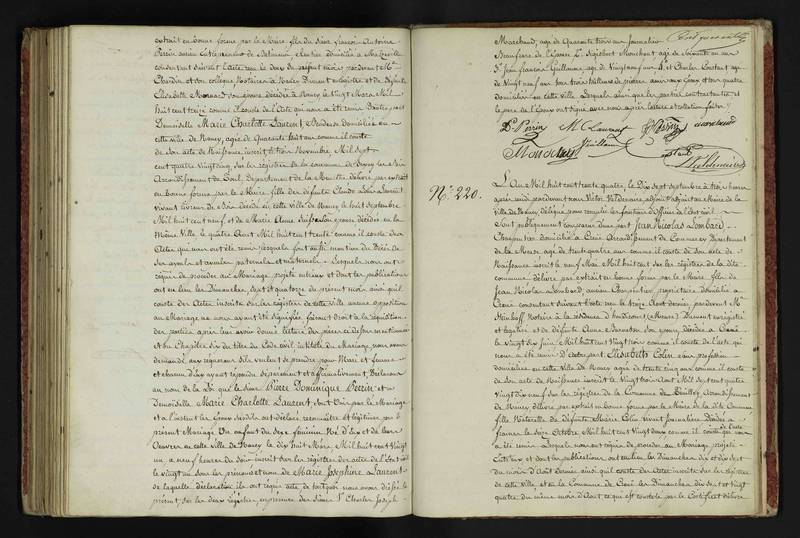 extrait en bonne forme par le Maire fils du Sieur François Antoine
Perrin ancien Entrepreneur de Batiment rentier domicilié à Maxéville
consentant suivant l'acte reçu le deux du présent mois pardevant Me
Chardin et son collègue Notaires à Nancy Dument enregistré et de défunte
Elisabeth son épouse décédée à Nancy le vingt Mars Mil
huit cent treize comme il conste de l'acte qui nous a été remis D'autre part
Demoiselle Marie Charlotte Laurent, Brodeuse domiciliée en
cette ville de Nancy, agée de Quarante huit ans comme il conste
de son acte de Naissance inscrit le trois Novembre Mil sept
cent quatre vingt cinq sur les registres de la commune de
Arrondissement de Toul, Département de la Meurthe délivré par extrait
en bonne forme par le Maire fille des défunts Claude Laurent
vivant décédé en cette ville de Nancy le huit Septembre
Mil huit cent neuf et de Marie Anne son épouse décédée en la
Même ville le quatre Aout Mil huit cent trente comme il conste des
actes qui nous ont été remis lesquels font aussi mention du Décès de
ses ayeuls et ayeules paternels et maternels. Lesquels nous ont
requis de procéder au Mariage projeté entr'eux et dont les publications
ont eu lieu les Dimanches, sept et quatorze du présent mois ainsi qu'il
conste des Actes inscrits sur les registres de cette ville aucune opposition
au Mariage ne nous ayant été signifiée faisant Droit à la réquisition
des parties après leur avoir donné lecture des pièces ci dessus mentionnées
et du Chapitre six du titre du Code civil intitulé du Mariage, nous avons
demandé aux requérans s'ils veulent se prendre pour Mari et femme
et chacun d'eux ayant répondu séparément et affirmativement, Déclarons
au nom de la Loi que le Sieur Pierre Dominique Perrin et
Demoiselle Marie Charlotte Laurent, sont Unis par le Mariage
et à l'instant les Epoux susdits ont déclaré reconnaître et légitimer par le
présent Mariage Un enfant du sexe féminin Né d'eux et de leurs
Oeuvres en cette ville de Nancy le dix huit Mars Mil huit cent Vingt
un a neuf heures du soir inscrit sur les registres des actes de l'Etat civil
le vingt un sous les prénoms et nom de Marie Joséphine Laurent
de laquelle déclaration ils ont requis acte, de tout quoi nous avons dressé le
présent sur les deux registres, en présence des Sieurs Charles Joseph
Marchand, agé de Quarante trois ans Journalier
Beaufrère de l'épouse Sigisbert Mouchant agé de soixante un ans
Jn François Guillaume agé de Vingt neuf ans et Charles Constant agé
de Vingt neuf ans tous trois tailleurs de pierres amis aux époux et tous quatre
domiciliés en cette ville Lesquels ainsi que les parties contractantes et
le père de l'époux ont signé avec nous après lecture et collation faites.
D. Perrin M C Laurent Perrin marchand
Mouchant Guillaume constant
Valdenaire
No. 220.
L'An Mil huit cent trente quatre, le Dix sept Septembre à trois heures
après midi pardevant nous Victor Valdenaire adjoint au Maire de la
Ville de Nancy délégué pour remplir les fonctions d'officier de l'Etat civil
Sont publiquement comparus d'une part Jean Nicolas Lombard
Charpentier domicilié à Arrondissement de Commercy Département
de la Meuse agé de trente ans comme il conste de son acte de
Naissance inscrit le neuf Mai Mil huit cent sur les registres de la dite
commune délivré par extrait en bonne forme par le Maire, fils de
Jean Nicolas Lombard, ancien Charpentier, propriétaire domicilié à
consentant suivant l'acte reçu le treize Aout dernier, pardevant Me
Notaire à la résidence d'hudicourt (Meuse) Dument enregistré
et légalisé et de défunte Anne son épouse, Décédée à
le vingt dix Juin Mil huit cent vingt trois comme il conste de l'acte qui
nous a été remis D'autre part Elisabeth Colin sans profession
domiciliée en cette Ville de Nancy agée de trente cinq ans comme il conste
de son acte de Naissance inscrit le vingt trois Aout Mil Sept cent quatre
Vingt dix neuf sur les registres de la Commune de Arrondissement
de Nancy délivré par extrait en bonne forme par le Maire de la dite Commune
fille Naturelle de défunte Marie Colin vivant Journalière Décédée à
le seize Octobre Mil huit cent Vingt deux comme il conste de l'acte qui nous
a été remis Lesquels nous ont requis de procéder au Mariage projeté
Entr'eux et dont les publications ont eu lieu les Dimanches dix et dix sept
du mois d'Aout Dernier ainsi qu'il conste des Actes inscrits sur les registres
de cette ville, et en la Commune de les Dimanches dix sept et vingt
quatre du même mois d'Aout ce qui est constaté par le Certificat délivré